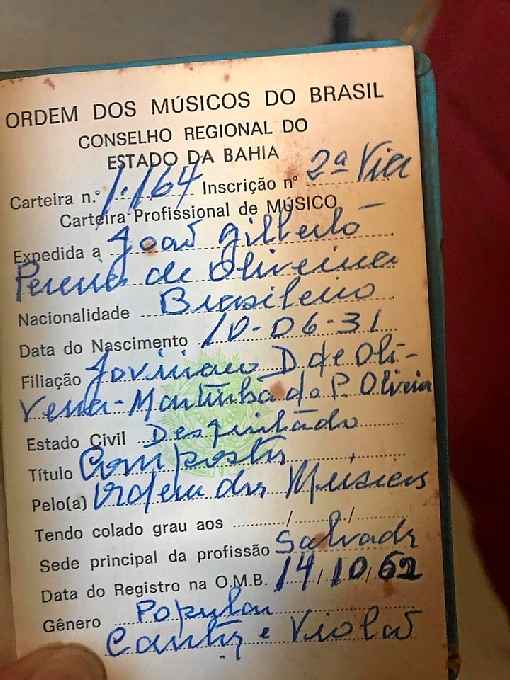 ORDEM DOS MÚSICOS DO BRASIL
CONSELHO REGIONAL DO
ESTADO DA BAHIA
Carteira n.º 1.164 Inscrição nº 2ª Via
Carteira Profissional de MÚSICO
Expedida a João Gilberto
Pereira de Oliveira
Nacionalidade Brasileiro
Data do Nascimento 10-06-31
Filiação Joviniano D de Oli-
veira - Martinha do P. Oliveira
Estado Civil Desquitado
Título Compositor
Pelo(a) Ordem dos Músicos
Tendo colado grau aos ......../......../........
Sede principal da profissão Salvador
Data do Registro na O.M.B. 14/10/62
Gênero Popular
Cantor e Violão